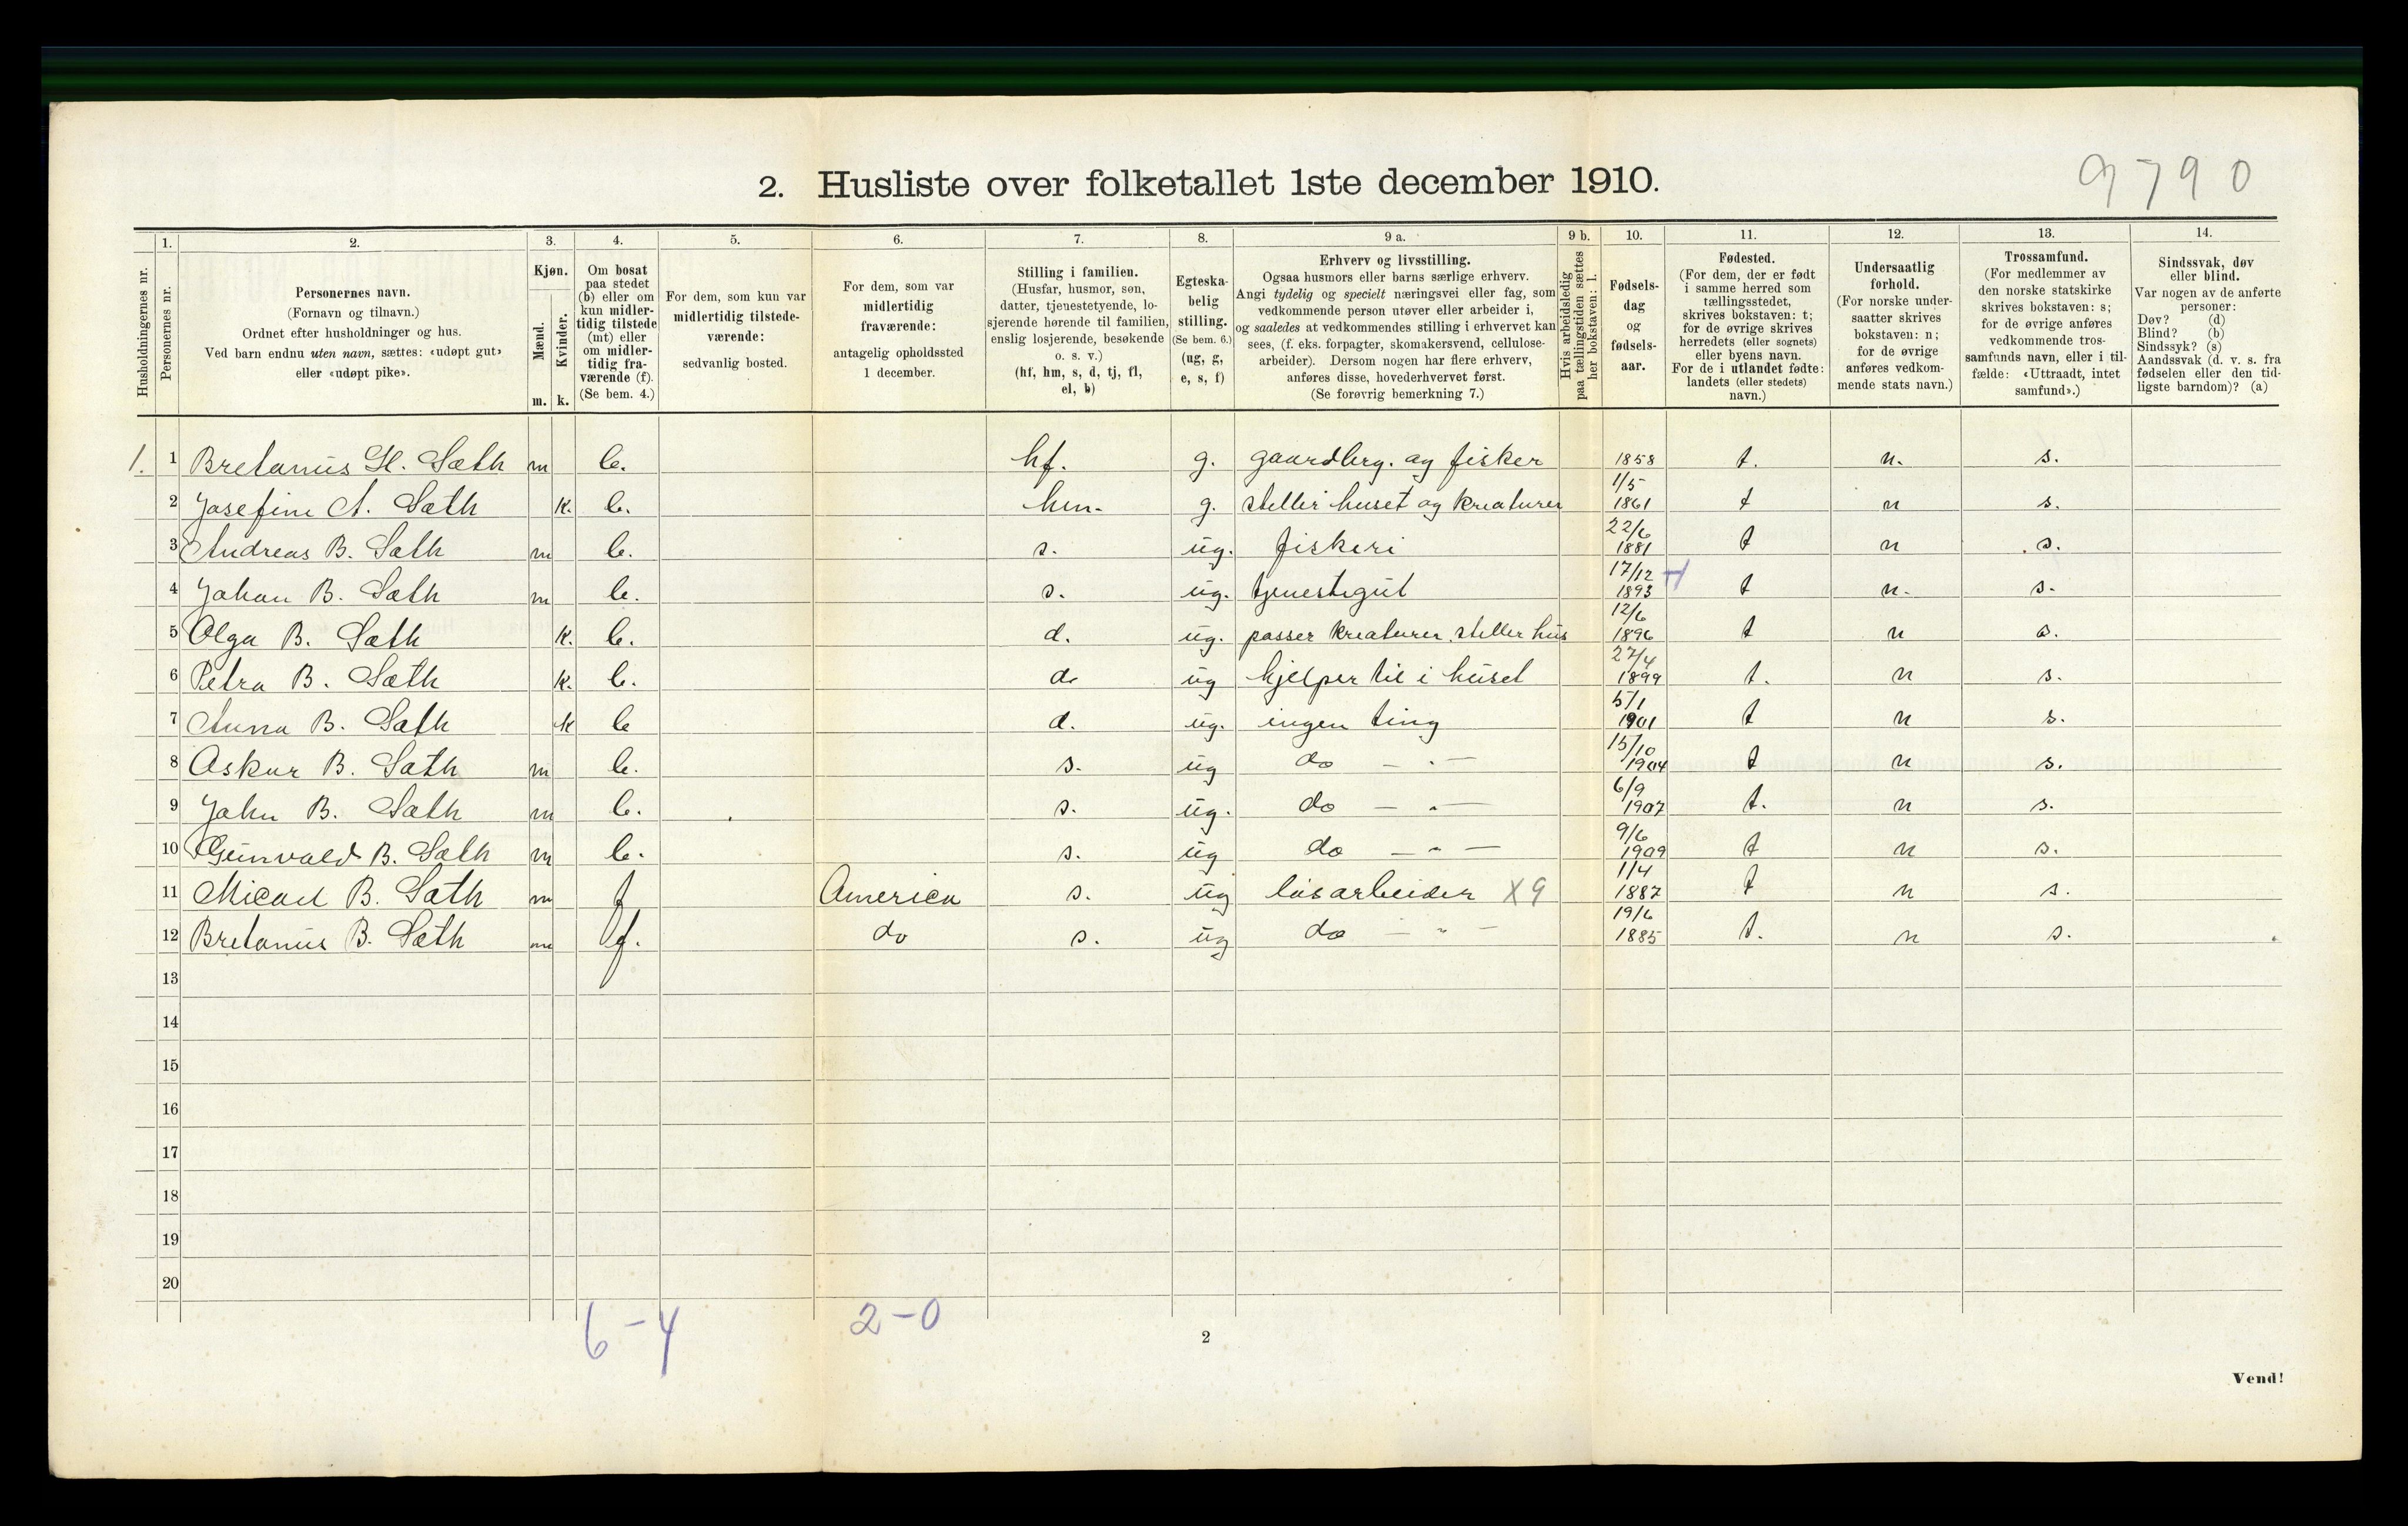 9790
2. Husliste over folketallet 1ste december 1910.
Husholdningernes nr.
1.
Personernes nr.
2.
Personernes navn.
(Fornavn og tilnavn.)
Ordnet efter husholdninger og hus.
Ved barn endnu uten navn, sættes: «udøpt gut»
eller «udøpt pike».
3.
Kjøn.
Mænd.
Kvinder.
m. k.
4.
Om bosat
paa stedet
(b) eller om
kun midler-
tidig tilstede
(mt) eller
om midler-
tidig fra-
værende (f).
(Se bem. 4.)
5.
For dem, som kun var
midlertidig tilstede-
værende:
sedvanlig bosted.
6.
For dem, som var
midlertidig
fraværende:
antagelig opholdssted
1 december.
7.
Stilling i familien.
(Husfar, husmor, søn,
datter, tjenestetyende, lo-
sjerende hørende til familien,
enslig losjerende, besøkende
o. s. v.)
(hf, hm, s, d, tj, fl,
el, b)
8.
Egteska-
belig
stilling.
(Se bem. 6.)
(ug, g,
e, s, f)
9 a.
Erhverv og livsstilling.
Ogsaa husmors eller barns særlige erhverv.
Angi tydelig og specielt næringsvei eller fag, som
vedkommende person utøver eller arbeider i,
og saaledes at vedkommendes stilling i erhvervet kan
sees, (f. eks. forpagter, skomakersvend, cellulose-
arbeider). Dersom nogen har flere erhverv,
anføres disse, hovederhvervet først.
(Se forøvrig bemerkning 7.)
9 b.
Hvis arbeidsledig
paa tællingstiden sættes
her bokstaven: l.
10.
Fødsels-
dag
og
fødsels-
aar.
11.
Fødested.
(For dem, der er født
i samme herred som
tællingsstedet,
skrives bokstaven: t;
for de øvrige skrives
herredets (eller sognets)
eller byens navn.
For de i utlandet fødte:
landets (eller stedets)
navn.)
12.
Undersaatlig
forhold.
(For norske under-
saatter skrives
bokstaven: n;
for de øvrige
anføres vedkom-
mende stats navn.)
13.
Trossamfund.
(For medlemmer av
den norske statskirke
skrives bokstaven: s;
for de øvrige anføres
vedkommende tros-
samfunds navn, eller i til-
fælde: «Uttraadt, intet
samfund».)
14.
Sindssvak, døv
eller blind.
Var nogen av de anførte
personer:
Døv? (d)
Blind? (b)
Sindssyk? (s)
Aandssvak (d. v. s. fra
fødselen eller den tid-
ligste barndom)? (a)
1. 1 Bretanus H. Sæth m b. hf. g. gaardbrg. og fisker 1858 t. n. s.
2 Josefine A. Sæth k. b. hm. g. steller huset og kreaturer 1/5 1861 t n s.
3 Andreas B. Sæth m b. s. ug. fiskeri 22/6 1881 t n s.
4 Johan B. Sæth m b. s. ug. tjenestegut 17/12 1893 t n. s.
5 Olga B. Sæth k. b. d. ug. passer kreaturer, steller hus 12/6 1896 t n s.
6 Petra B. Sæth k. b. d. ug hjelper til i huset 27/4 1899 t. n s.
7 Anna B. Sæth k b d. ug. ingen ting 5/1 1901 t n s.
8 Askur B. Sæth m b. s. ug do — " — 15/10 1904 t n s.
9 John B. Sæth m b. s. ug. do — " — 6/9 1907 t. n s.
10 Gunvald B. Sæth m b. s. ug do — " — 9/6 1909 t n s.
11 Micael B. Sæth m f America s. ug løsarbeider X9 1/4 1887 t n s.
12 Bretanus B. Sæth m f. do s. ug do — " — 19/6 1885 t. n s.
13
14
15
16
17
18
19
20
6-4 2-0
2
Vend!